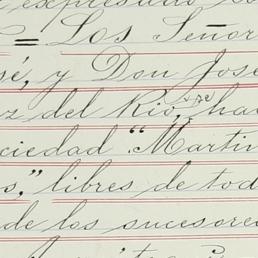 expresado
= Los Señor
sé, y Don José
z del Rio, ha
ciedad "Martin
s," libres de tod
de los sucesore